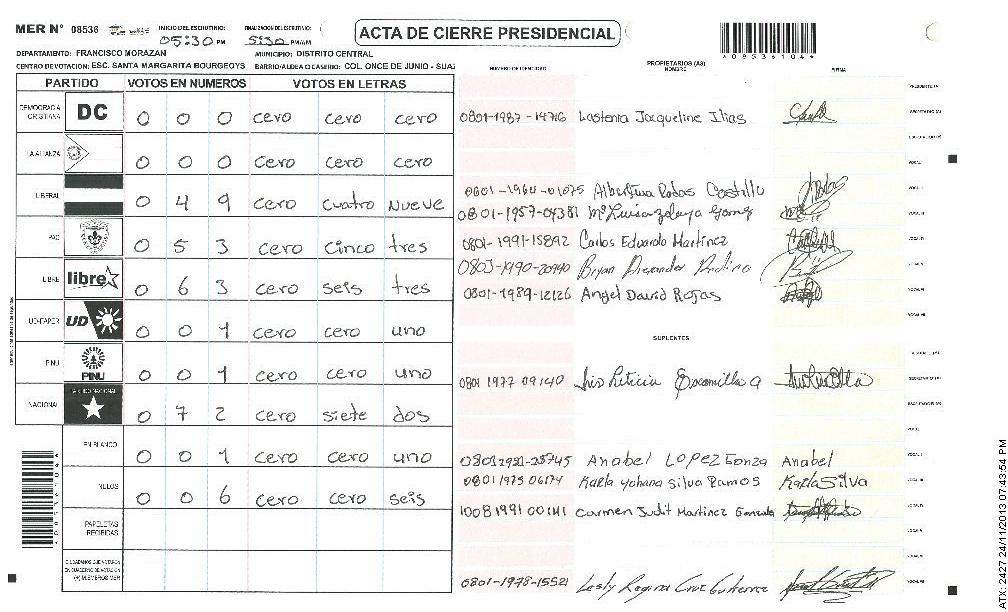 MER N° 08536 INICIO DEL ESCRUTINIO: 05:30 PM FINALIZACION DEL ESCRUTINIO: 5:30 PM/AM
ACTA DE CIERRE PRESIDENCIAL
*08536104*
DEPARTAMENTO: FRANCISCO MORAZAN MUNICIPIO: DISTRITO CENTRAL
CENTRO DE VOTACION: ESC. SANTA MARGARITA BOURGEOYS BARRIO/ALDEA O CASERIO: COL. ONCE DE JUNIO - SUA
NUMERO DE IDENTIDAD PROPIETARIOS (AS) NOMBRE FIRMA
PARTIDO VOTOS EN NUMEROS VOTOS EN LETRAS
DEMOCRACIA CRISTIANA DC 0 0 0 cero cero cero
LA ALIANZA 0 0 0 cero cero cero
LIBERAL 0 4 9 cero cuatro nueve
PAC 0 5 3 cero cinco tres
LIBRE libre 0 6 3 cero seis tres
UD-FAPER UD 0 0 1 cero cero uno
PINU PINU 0 0 1 cero cero uno
NACIONAL 0 7 2 cero siete dos
EN BLANCO 0 0 1 cero cero uno
NULOS 0 0 6 cero cero seis
PAPELETAS RECIBIDAS
CIUDADANOS QUE VOTARON EN CUADERNO DE VOTACION (+) MIEMBROS MER
0801-1987-14716 Lastenia Jacqueline Ilias
0601-1964-01075 Albertina Rodas Castillo
0801-1957-04381 Mª Luisa Zelaya Gomez
0801-1991-15892 Carlos Eduardo Martinez
0803-1990-20990 Bryan Alexander
0801-1989-12126 Angel David Rojas
SUPLENTES
0801 1977 09140 Iris Leticia Escamilla
Anabel LOPEZ Anabel
0801 1975 06174 Karla Yohana Silva Ramos Karla Silva
1008 1991 00141 Carmen Judit Martinez Gonzales
0801-1978-15521 Lesly Regina Cruz Gutierrez
ATX: 2427 24/11/2013 07:43:54 PM